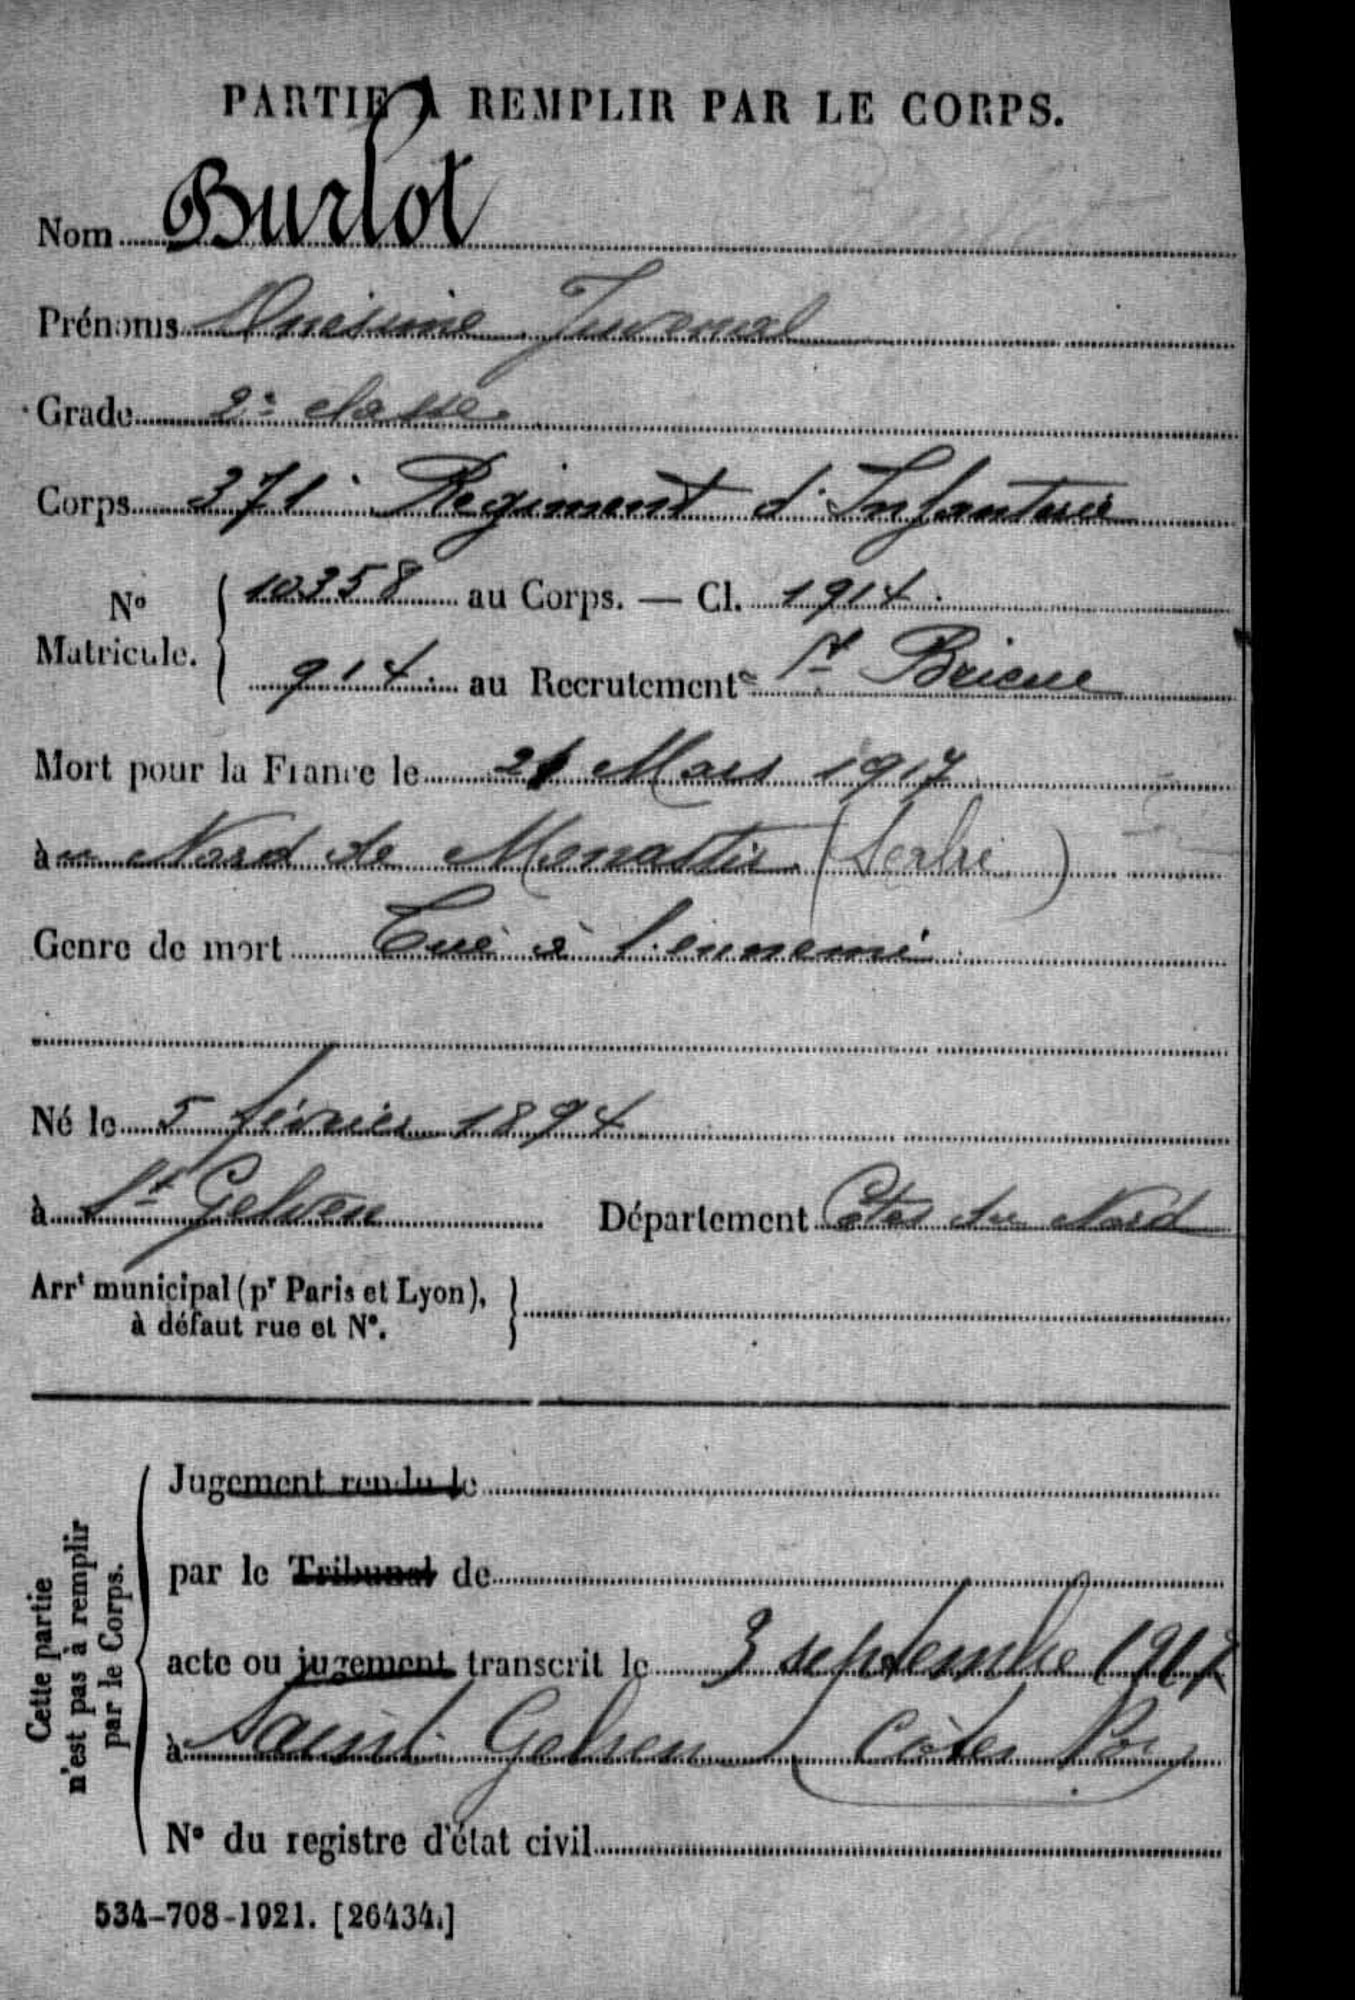 PARTIE A REMPLIR PAR LE CORPS.
Nom Burlot
Prénoms Onésime Juvenal
Grade 2e classe.
Corps 371e Régiment d'Infanterie
No Matricule. 10358 au Corps. — Cl. 1914.
914. au Recrutement St Brieuc
Mort pour la France le 21 Mars 1917
à u Nord de Monastir (Serbie)
Genre de mort Tué à l'ennemi
Né le 5 février 1894
à St Gelven Département Côtes du Nord
Arrt municipal (pr Paris et Lyon),
à défaut rue et N°.
Cette partie
n'est pas à remplir
par le Corps.
Jugement rendu le
par le Tribunal de
acte ou jugement transcrit le 3 septembre 1917
à Saint Gelven (Côtes
N° du registre d'état civil
534-708-1921. [26434.]